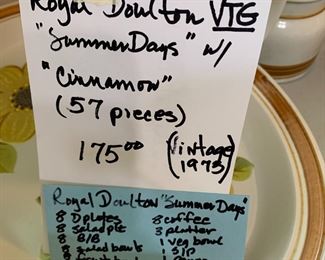 Royal Doulton VTG
"Summer Days" w/
"Cinnamon"
(57 pieces)
175.00 (Vintage 1975)
Royal Doulton "Summer Days"
8 D plates 8 coffee
8 salad pl 3 platter
8 B/B 1 veg bowl
8 salad bowls 1 S/P